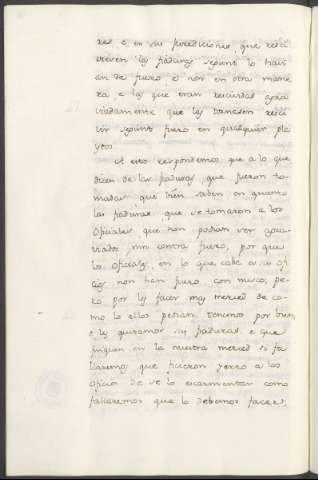 res e en sus jurediciones que reci
viesen las fiaduras segunt lo havi
an de fuero e non en otra mane
ra, e las que eran recividas agra
viadamente que les mandasen reci
vir segunt fuero en qualquier pley
tos.
A esto respondemos que a lo que
dicen de las fiaduras que fueron to
madas que bien saben en quanto
las fiaduras que se tomaron a los
oficiales que non podian ser agra
viados nin contra fuero, por que
los oficiales en lo que cabe a su ofi
cio non han fuero con nusco, pe
ro por les facer mas merced de co
mo lo ellos pedian tenemos por bien
e les quitamos sus fiaduras e que
finquen en la nuestra merced si fa
llaremos que ficieron yerro a los
oficios de se lo escarmentar como
fallaremos que lo debemos facer.